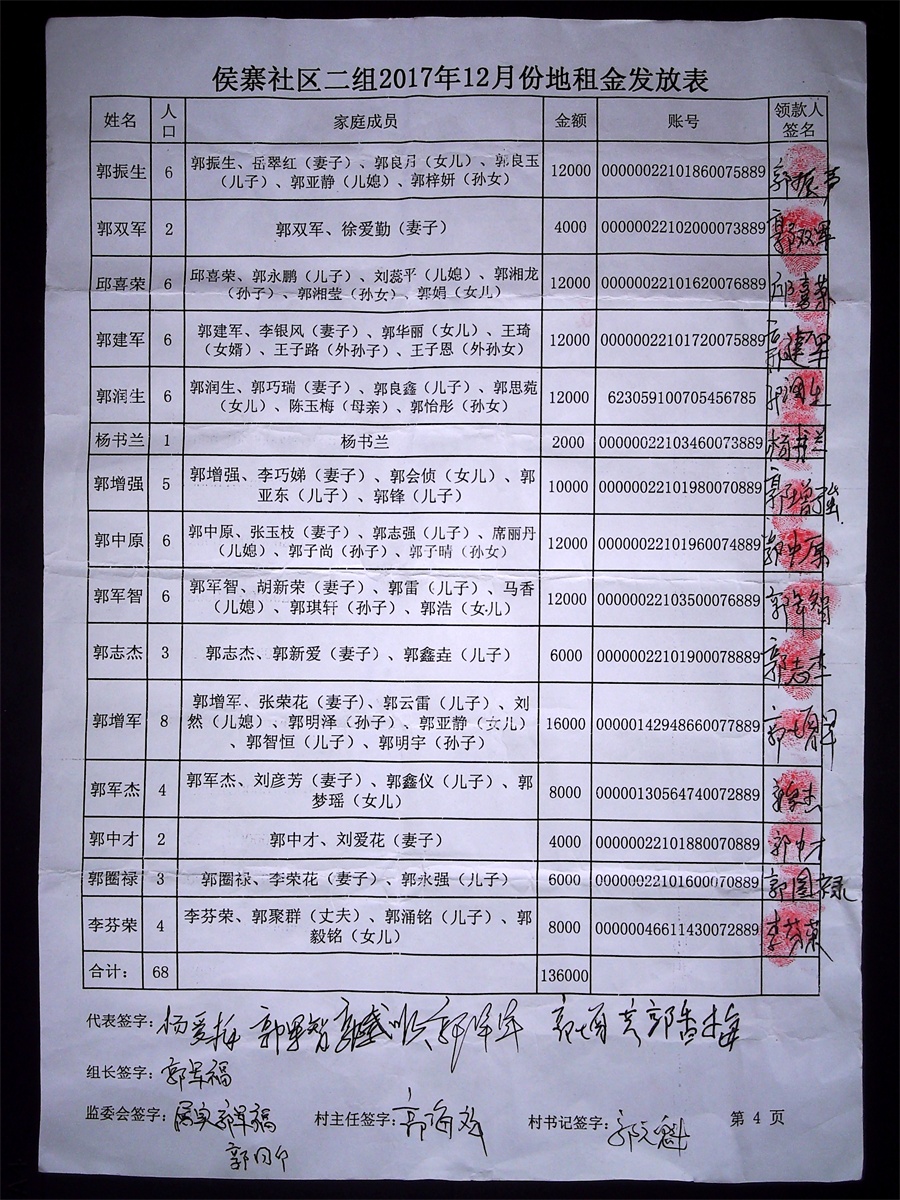 侯寨社区二组2017年12月份地租金发放表
姓名 人口 家庭成员 金额 账号 领款人签名
郭振生 6 郭振生、岳翠红（妻子）、郭良月（女儿）、郭良玉（儿子）、郭亚静（儿媳）、郭梓妍（孙女） 12000 00000022101860075889 郭振声
郭双军 2 郭双军、徐爱勤（妻子） 4000 00000022102000073889 郭双军
邱喜荣 6 邱喜荣、郭永鹏（儿子）、刘蕊平（儿媳）、郭湘龙（孙子）、郭湘莹（孙女）、郭娟（女儿） 12000 00000022101620076889 邱喜荣
郭建军 6 郭建军、李银风（妻子）、郭华丽（女儿）、王琦（女婿）、王子路（外孙子）、王子恩（外孙女） 12000 00000022101720075889 郭建军
郭润生 6 郭润生、郭巧瑞（妻子）、郭良鑫（儿子）、郭思菀（女儿）、陈玉梅（母亲）、郭怡彤（孙女） 12000 623059100705456785 郭润生
杨书兰 1 杨书兰 2000 00000022103460073889 杨书兰
郭增强 5 郭增强、李巧娣（妻子）、郭会侦（女儿）、郭亚东（儿子）、郭锋（儿子） 10000 00000022101980070889 郭增强
郭中原 6 郭中原、张玉枝（妻子）、郭志强（儿子）、席丽丹（儿媳）、郭子尚（孙子）、郭子晴（孙女） 12000 00000022101960074889 郭中原
郭军智 6 郭军智、胡新荣（妻子）、郭雷（儿子）、马香（儿媳）、郭琪轩（孙子）、郭浩（女儿） 12000 00000022103500076889 郭军智
郭志杰 3 郭志杰、郭新爱（妻子）、郭鑫垚（儿子） 6000 00000022101900078889 郭志杰
郭增军 8 郭增军、张荣花（妻子）、郭云雷（儿子）、刘然（儿媳）、郭明泽（孙子）、郭亚静（女儿）、郭智恒（儿子）、郭明宇（孙子） 16000 00000142948660077889 郭增军
郭军杰 4 郭军杰、刘彦芳（妻子）、郭鑫仪（儿子）、郭梦瑶（女儿） 8000 00000130564740072889 郭军杰
郭中才 2 郭中才、刘爱花（妻子） 4000 00000022101880070889 郭中才
郭圈禄 3 郭圈禄、李荣花（妻子）、郭永强（儿子） 6000 00000022101600070889 郭圈禄
李芬荣 4 李芬荣、郭聚群（丈夫）、郭涌铭（儿子）、郭毅铭（女儿） 8000 00000046611430072889 李芬荣
合计： 68 136000
代表签字： 杨爱振 郭军智
组长签字： 郭军福
监委会签字： 郭军福 村主任签字： 郭海 村书记签字： 郭文魁 第 4 页